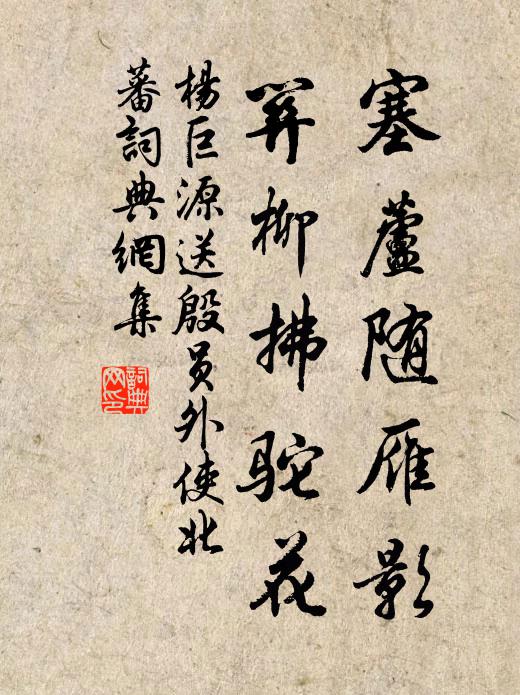 塞蘆随雁影
關柳拂駝花
楊巨源送殷員外使北
蕃詞典網集
詞典網印